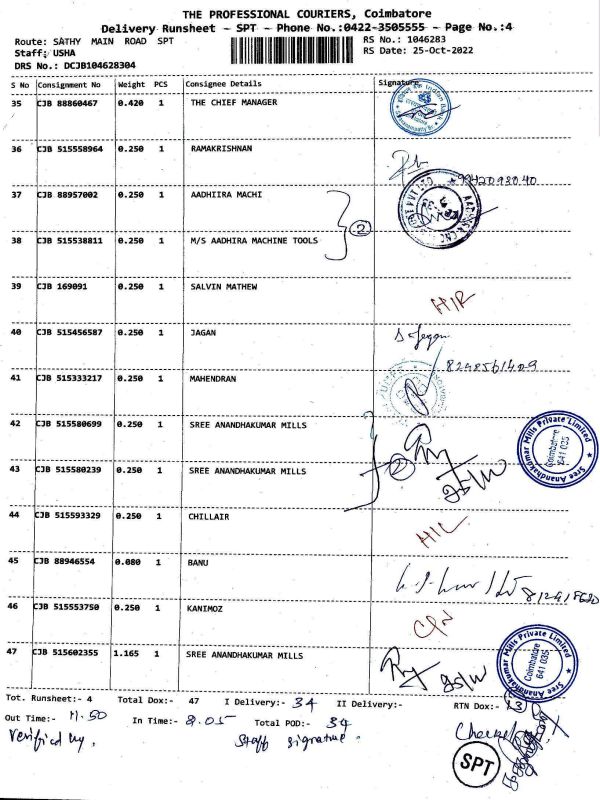 THE PROFESSIONAL COURIERS, Coimbatore
Delivery Runsheet - SPT - Phone No.:0422-3505555 - Page No.:4
Route: SATHY MAIN ROAD SPT
RS No.: 1046283
Staff: USHA
RS Date: 25-Oct-2022
DRS No.: DCJB104628304
S No Consignment No Weight PCS Consignee Details Signature
35 CJB 88860467 0.420 1 THE CHIEF MANAGER
Indian Bank
36 CJB 515558964 0.250 1 RAMAKRISHNAN
37 CJB 88957002 0.250 1 AADHIIRA MACHI
2
38 CJB 515538811 0.250 1 M/S AADHIRA MACHINE TOOLS
39 CJB 169091 0.250 1 SALVIN MATHEW
40 CJB 515456587 0.250 1 JAGAN
41 CJB 515333217 0.250 1 MAHENDRAN
42 CJB 515580699 0.250 1 SREE ANANDHAKUMAR MILLS
Sree Anandhakumar Mills Private Limited
Coimbatore
641 035
43 CJB 515580239 0.250 1 SREE ANANDHAKUMAR MILLS
2
44 CJB 515593329 0.250 1 CHILLAIR
45 CJB 88946554 0.080 1 BANU
46 CJB 515553750 0.250 1 KANIMOZ
47 CJB 515602355 1.165 1 SREE ANANDHAKUMAR MILLS
Sree Anandhakumar Mills Private Limited
Coimbatore
641 035
Tot. Runsheet:- 4 Total Dox:- 47 I Delivery:- 34 II Delivery:- RTN Dox:- 13
Out Time:- 11.50 In Time:- 8.05 Total POD:- 34
Verified by, Staff signature.
SPT